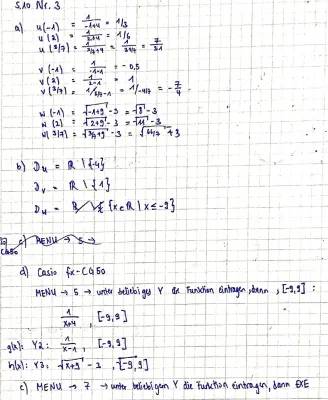 S.10 Nr. 3
a) u(-1) = 1/(-1+4) = 1/3
u(2) = 1/(2+4) = 1/6
u(3/7) = 1/(3/7+4) = 1/(31/7) = 7/31
v(-1) = 1/(-1-1) = -0,5
v(2) = 1/(2-1) = 1
v(3/7) = 1/(3/7-1) = 1/(-4/7) = -7/4
w(-1) = √(-1+9) - 3 = √8 - 3
w(2) = √(2+9) - 3 = √11 - 3
w(3/7) = √(3/7+9) - 3 = √(66/7) + 3
b) Du = ℝ \ {-4}
Dv = ℝ \ {1}
Du = {x∈ℝ | x ≤ -9}
c) MENU → 5 →
CG50
d) Casio fx-CG50
MENU → 5 → unter beliebiges Y die Funktion eintragen, dann , [-9,9] :
1/(x+4) , [-9,9]
g(x): Y2: 1/(x-1) , [-9,9]
h(x): Y3: √(x+9) - 3 , [-9,9]
c) MENU → 7 → unter beliebigem Y die Funktion eintragen, dann EXE